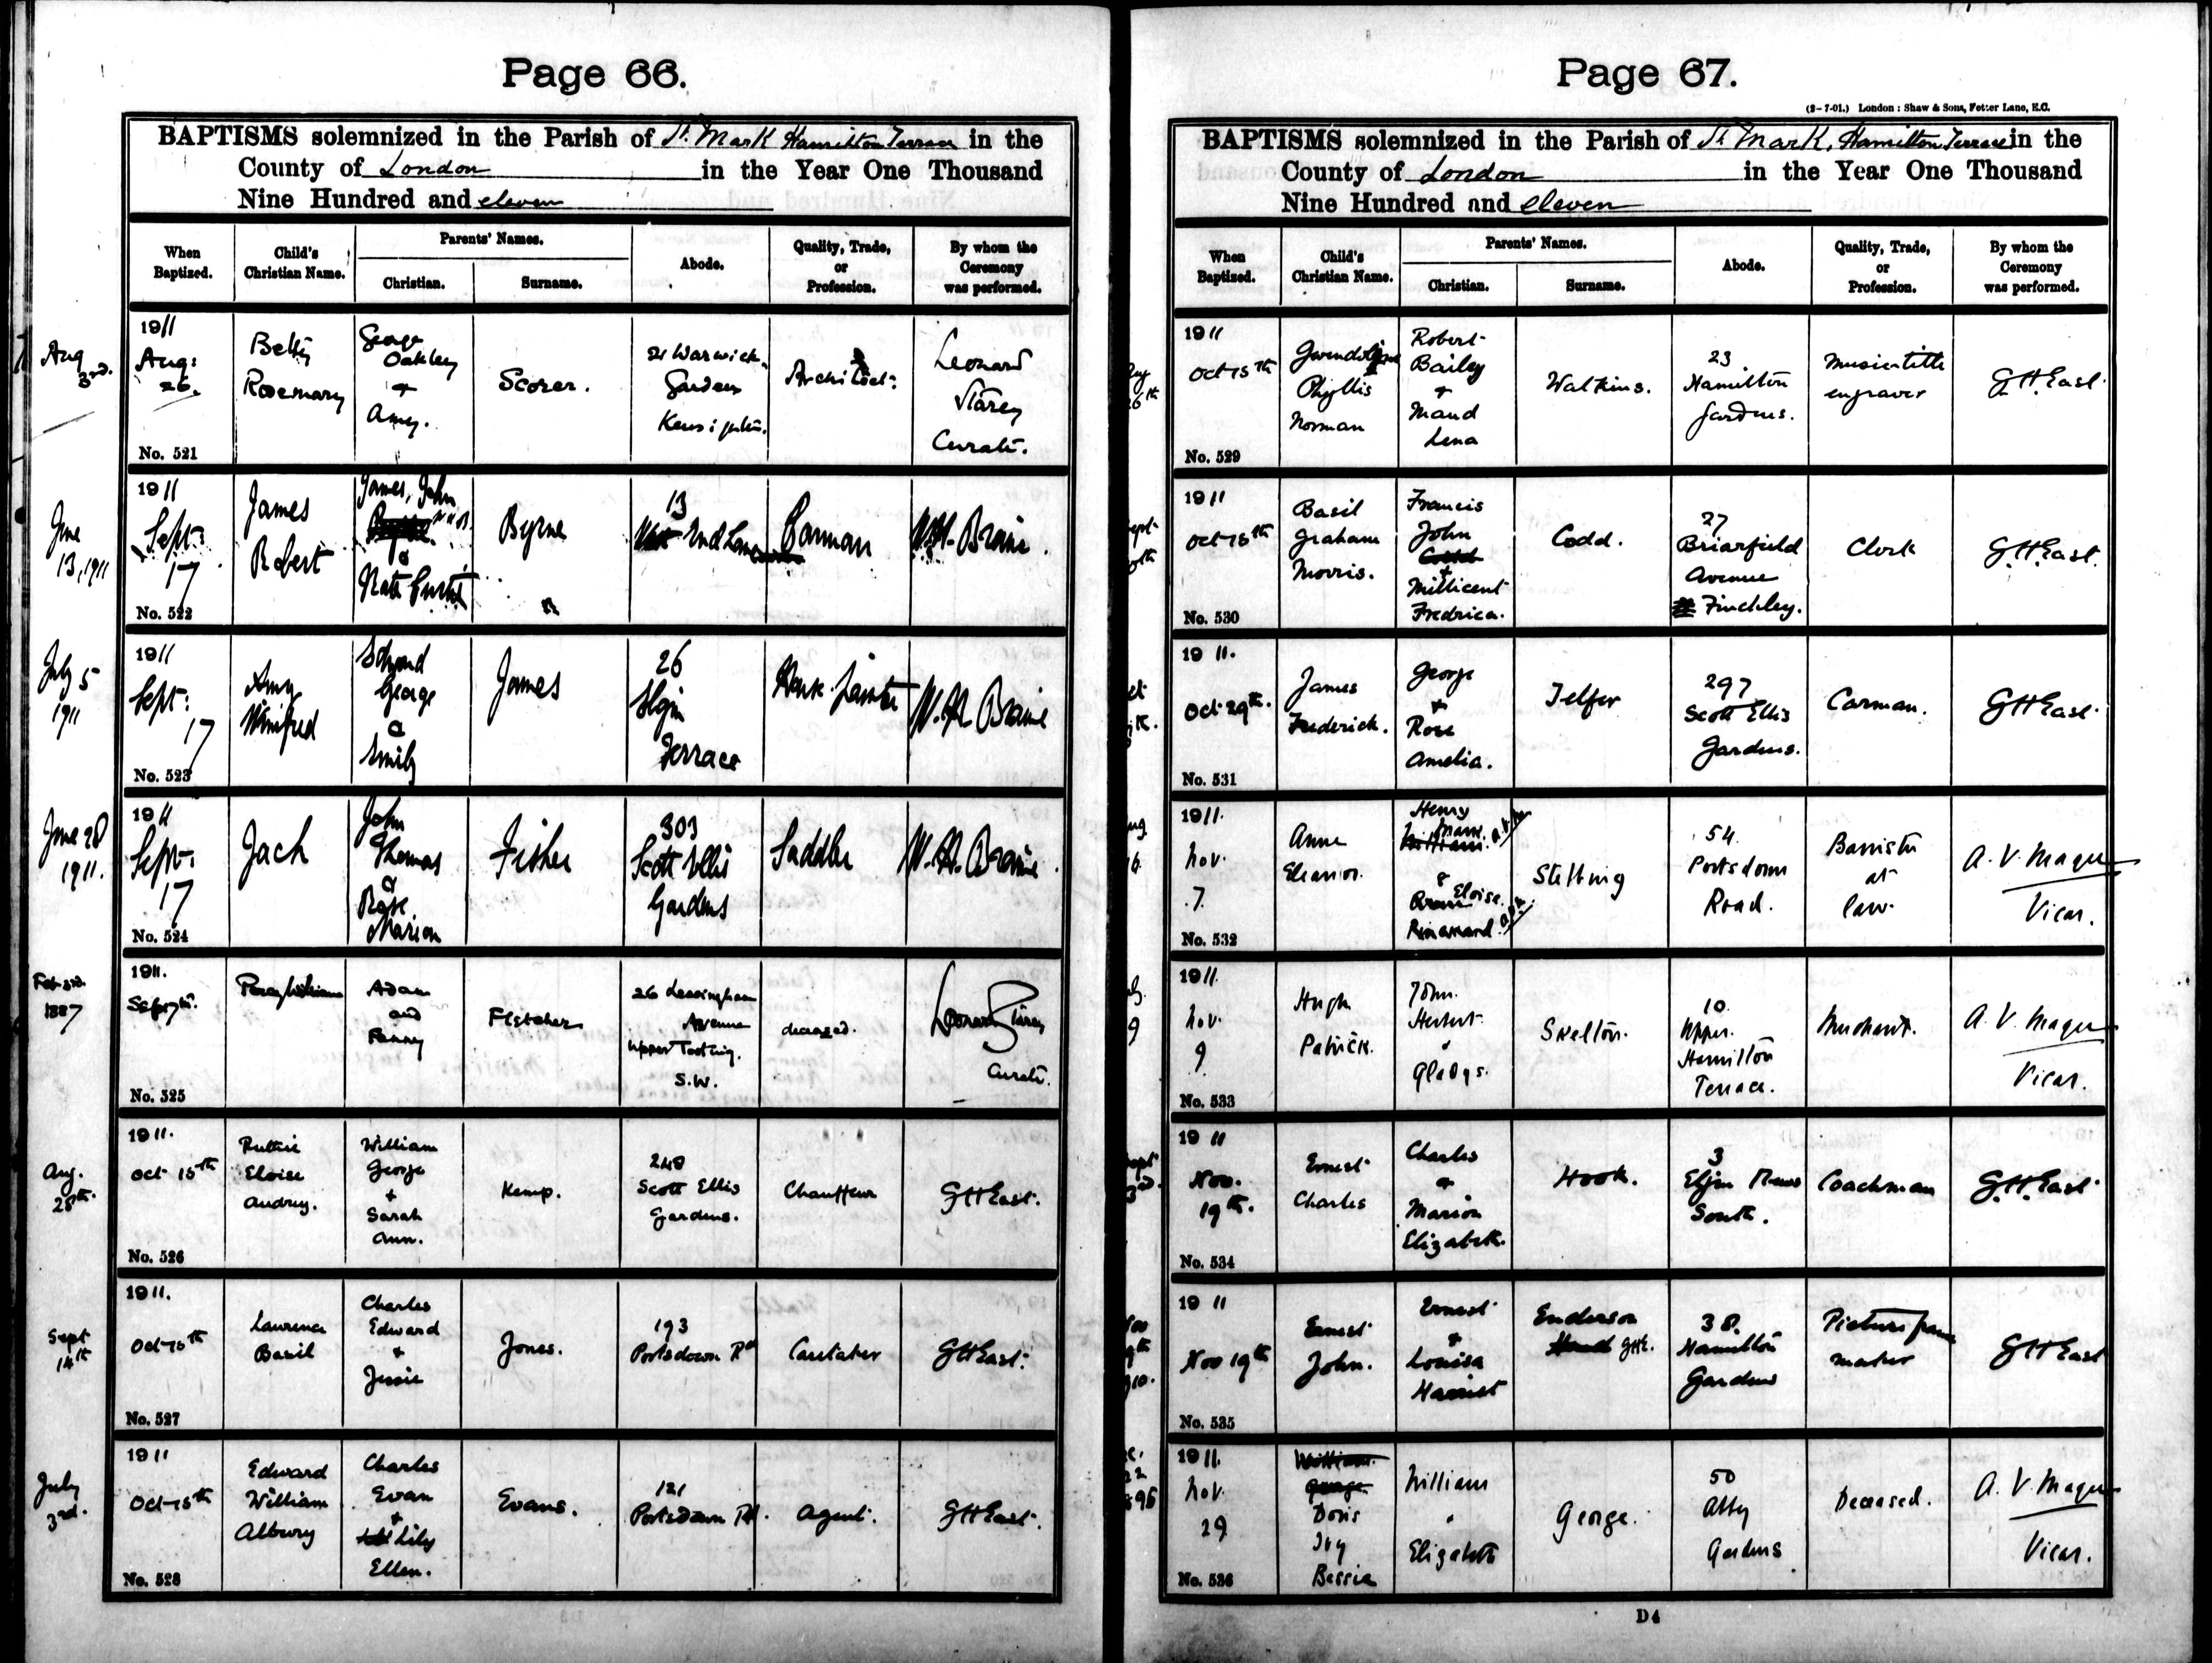 Page 66.
BAPTISMS solemnized in the Parish of St. Mark Hamilton Terrace in the
County of London in the Year One Thousand
Nine Hundred and eleven
When Baptized.
Child's Christian Name.
Parents' Names.
Christian.
Surname.
Abode.
Quality, Trade, or Profession.
By whom the Ceremony was performed.
Aug 3rd.
1911
Aug: 26.
No. 521
Betty
Rosemary
George
Oakley
+
Amy.
Scorer.
21 Warwick
Gardens
Kensington.
Architect.
Leonard
Starey
Curate.
June
13, 1911
1911
Sept:
17
No. 522
James
Robert
James, John
&
Kate
Byrne
13
Carman
W.H. Braine.
July 5
1911
1911
Sept:
17
No. 523
Amy
Winifred
Edward
George
&
Emily
James
26
Elgin
Terrace
W.H. Braine
June 28
1911.
1911
Sept:
17
No. 524
Jack
John
Thomas
&
Rose
Marion
Fisher
303
Scott Ellis
Gardens
Saddler
W.H. Braine.
Feb
1887
1911.
Sept
No. 525
Percy William
Adam
and
Fanny
Fletcher
26 Lessingham
Avenue
Upper Tooting.
S.W.
deceased.
Leonard Starey
Curate.
Aug.
28th.
1911.
Oct 15th
No. 526
Eloise
Audrey.
William
George
+
Sarah
Ann.
Kemp.
248
Scott Ellis
Gardens.
Chauffeur
G H East.
Sept
14th
1911.
Oct 15th
No. 527
Laurence
Basil
Charles
Edward
+
Jessie
Jones.
193
Portsdown Rd
Caretaker
G H East.
July
3rd.
1911
Oct 15th
No. 528
Edward
William
Albury
Charles
Evan
+
Lily
Ellen.
Evans.
121
Portsdown Rd.
Agent.
G H East.
Page 67.
(2-7-01.) London: Shaw & Sons, Fetter Lane, E.C.
BAPTISMS solemnized in the Parish of St Mark, Hamilton Terrace in the
County of London in the Year One Thousand
Nine Hundred and eleven
When Baptized.
Child's Christian Name.
Parents' Names.
Christian.
Surname.
Abode.
Quality, Trade, or Profession.
By whom the Ceremony was performed.
1911
Oct 15th
No. 529
Phyllis
Norman
Robert
Bailey
+
Maud
Lena
Watkins.
23
Hamilton
Gardens.
Music title
engraver
G H East.
1911
Oct 15th
No. 530
Basil
Graham
Morris.
Francis
John
+
Millicent
Fredrica.
Codd.
27
Briarfield
Avenue
Finchley.
Clerk
G. H. East.
1911.
Oct 29th.
No. 531
James
Frederick.
George
+
Rose
Amelia.
Telfer
297
Scott Ellis
Gardens.
Carman.
G H East.
1911.
Nov.
7.
No. 532
Anne
Eleanor.
Henry
&
Eloise.
Stebbing
54.
Portsdown
Road.
Barrister
at
law.
A. V. Magee
Vicar.
1911.
Nov.
9
No. 533
Hugh
Patrick.
John.
Herbert
&
Gladys.
Skelton.
10.
Upper.
Hamilton
Terrace.
Merchant.
A. V. Magee
Vicar.
1911
Nov.
19th.
No. 534
Ernest
Charles
Charles
+
Marion
Elizabeth.
Hook.
3
Elgin Mews
South.
Coachman
G. H. East.
1911
Nov 19th
No. 535
Ernest
John.
Ernest
&
Louisa
Harriet
Enderson
GHE.
38.
Hamilton
Gardens
Picture frame
maker
G H East
1911.
Nov.
29
No. 536
William
George
Doris
Ivy
Bessie
William
&
Elizabeth
George.
50
Abby
Gardens
Deceased.
A. V. Magee
Vicar.
D4